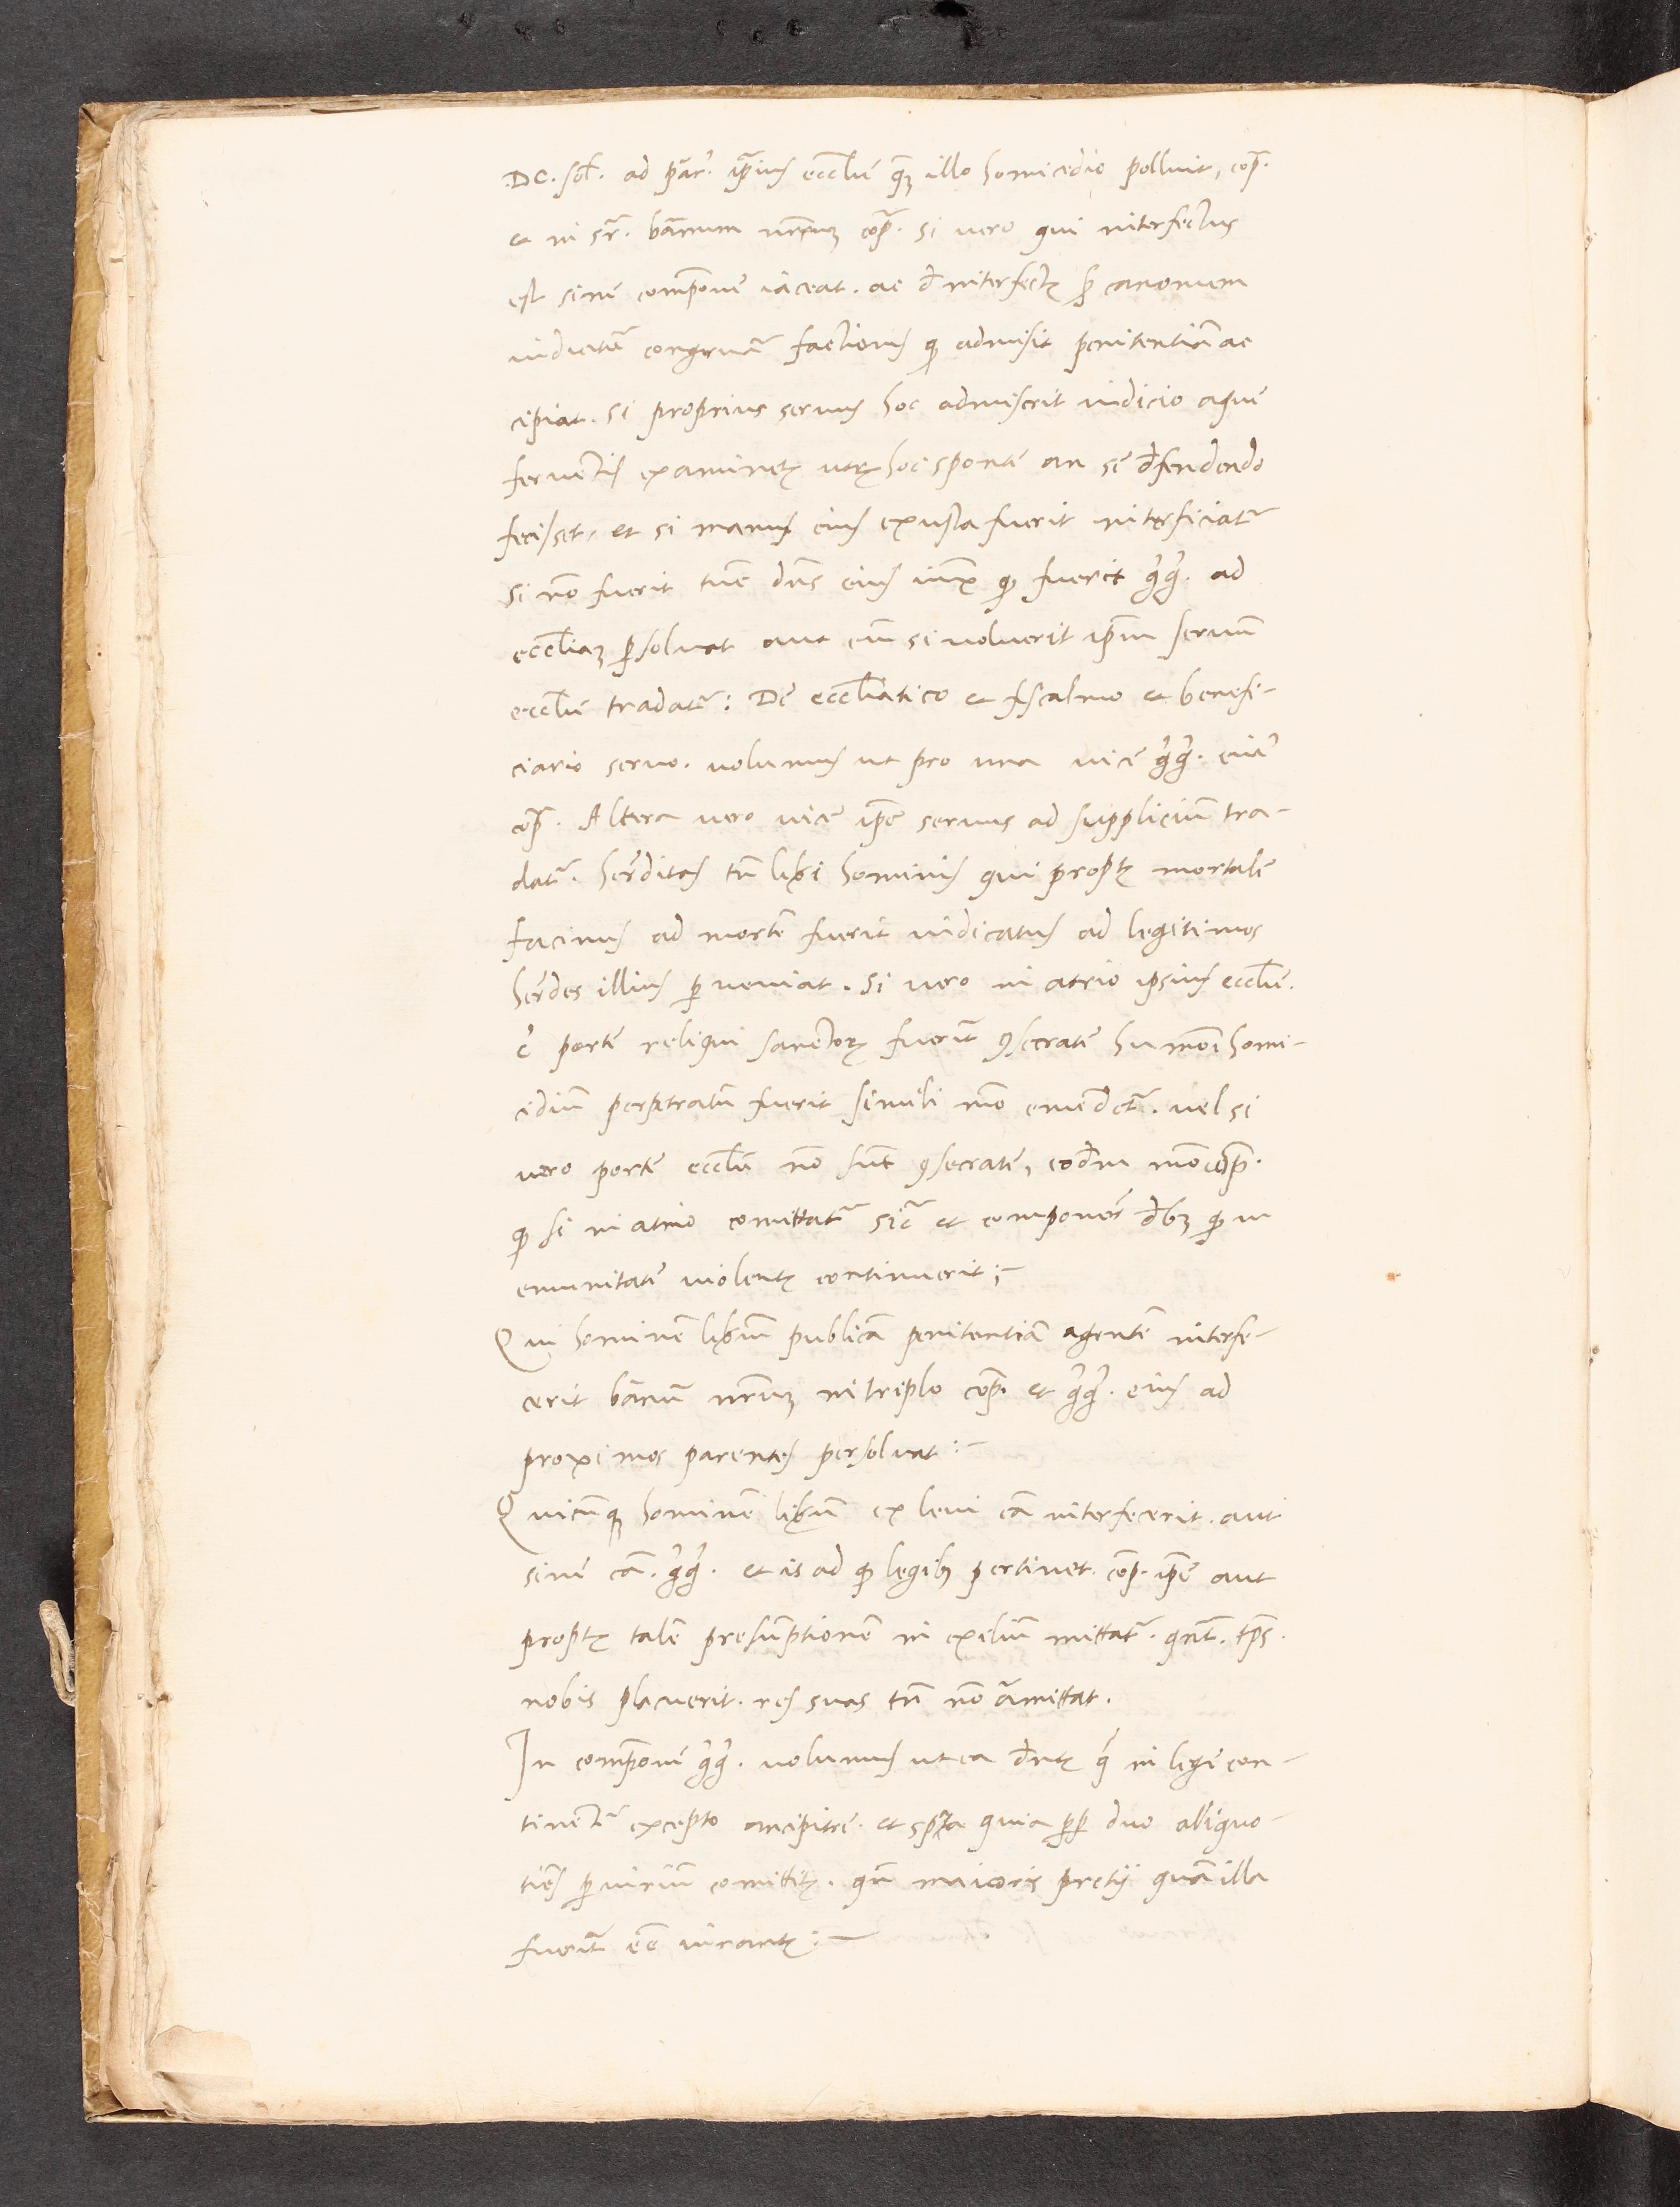 .DC. sol̃. ad p̃ar̃. ip̃ius eccl̃ie q̃ꝫ illo homicedio polluit, cõp̃.
et in sr̃. bãnum nr̃mꝫ cõp̃. si uero qui interfectus
est sine comp̃one iaceat. ac d̃ interfect᷑ p̃ canonum
iudicata congrua factionis q̃ admisit penitentiã ac
cipiat. si proprius seruus hoc admiserit iudicio aque
feruentis examinet᷑ utꝝ hoc sponte an se dẽfendendo
fecisset, et si manus eius exusta fuerit interficiat᷑
si nõ fuerit tũc dñs eius iuxᷓ q̃ fuerit g̃g̃. ad
eccl̃iaꝫ ꝑsoluat aut eũ si uoluerit ip̃m seruũ
eccl̃ie tradat᷑: De eccl̃iatico et fiscalino et benefi-
ciario seruo. uolumus ut pro una uice g̃g̃. eius
cõp̃. Altera uero uice ip̃e seruus ad suppliciũ tra-
dat᷑. her̃ditas tñ lib̃i hominis qui propt᷑ mortale
facinus ad mortẽ fuerit iudicatus ad legitimos
her̃des illius ꝑ ueniat. si uero in atrio ipsius eccl̃ie.
c̃ porte reliqui sanctoꝝ fuerĩt ꝯsecrate hu mõi homi-
cidiũ perpetratũ fuerit simili mõ emẽdet᷑. uel si
uero porte eccl̃ie nõ sũt ꝯsecrate, eodẽm mõ cõp̃.
q̃ si in atrio comittat᷑ sic̃ et componer̃ dẽbꝫ q̃ in
emunitate uiolent᷑ continuerit;-
Qui hominẽ lib̃um publicã penitentiã agentẽ interfe-
cerit bãnũ nr̃mꝫ in triplo cõp̃. et g̃g̃. eius ad
proximos parentes persoluat:-
Quicũqꝫ hominẽ lib̃um ex leui cã interfecerit. aut
sine cã. g̃g̃. et is ad q̃ legibꝫ pertinet. cõp̃. ip̃e aut
propt᷑ tale presũptionẽ in exiliũ mittat᷑. qñt. tp̃s.
nobis placuerit. res suas tñ nõ ãmittat.
In comp̃one g̃g̃. uolumus ut ea dẽnt᷑ q̃ in lege con-
tinent᷑ excepto ancipitre. et spata quia ꝑp̃ duo aliquo-
tiẽs ꝑ iuriũ comittit᷑. qñ maioris pretij quã illa
fuerĩt eẽe iurant᷑:-